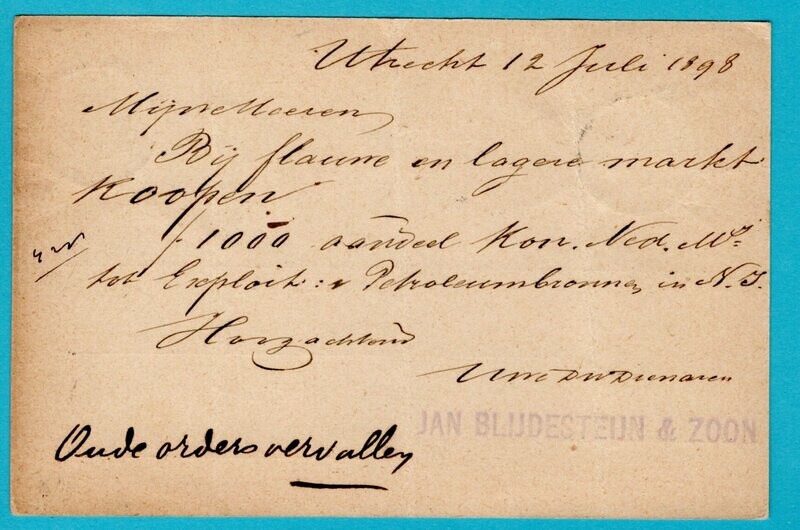 Utrecht 12 Juli 1898
Mijne Heeren
Bij flauwe en lagere markt
Koopen
f 1000 aandeel Kon. Ned. Mij
tot Exploit: v Petroleumbronnen in N.I.
Hoogachtend
Uwe DW Dienaren
JAN BLIJDESTEIJN & ZOON
Oude orders vervallen